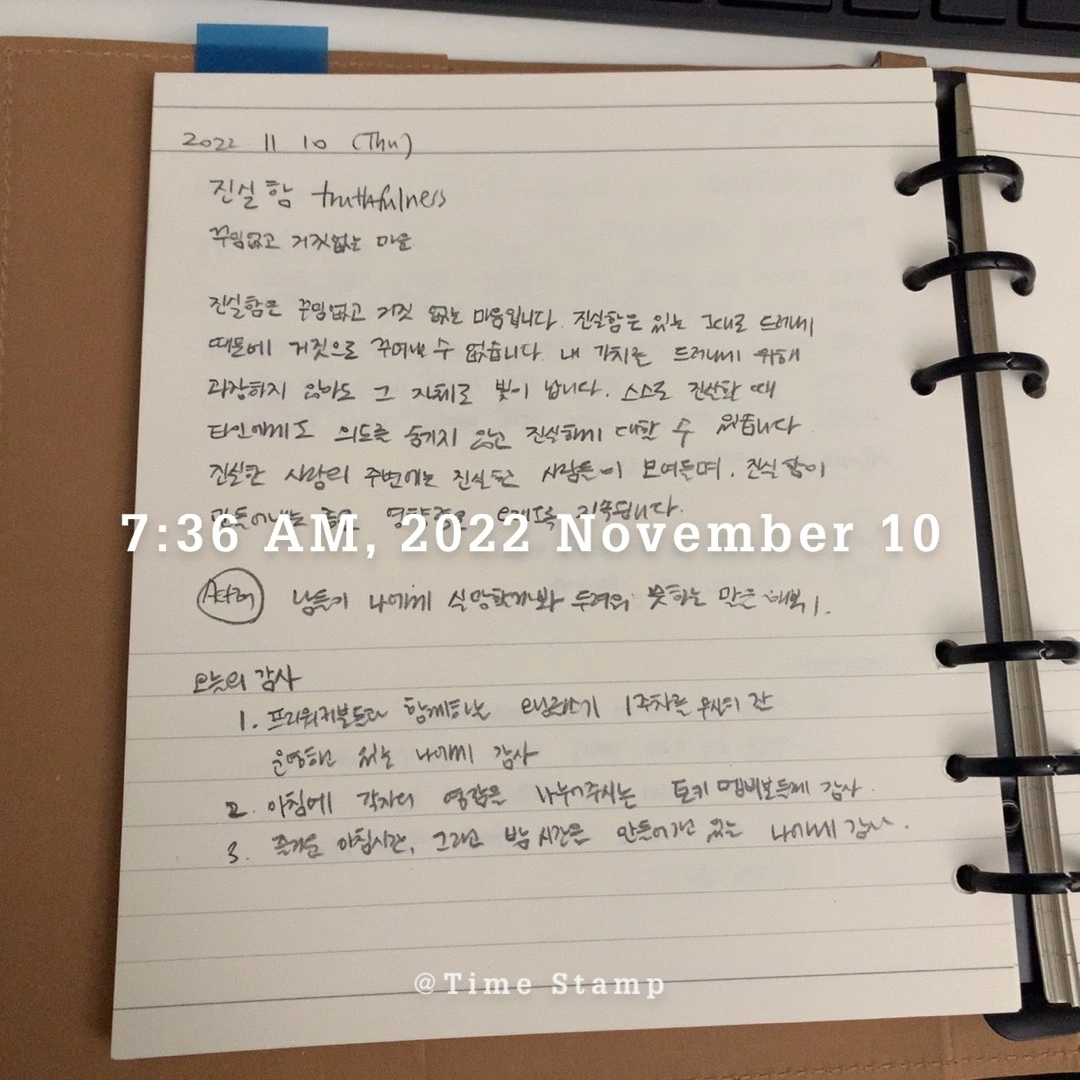 2022 11 10 (Thu)
진실함 truthfulness
꾸밈없고 거짓없는 마음
진실함은 꾸밈없고 거짓 없는 마음입니다. 진실함은 있는 그대로 드러내기
때문에 거짓으로 꾸며낼 수 없습니다. 내 가치를 드러내기 위해
과장하지 않아도 그 자체로 빛이 납니다. 스스로 진실할 때
타인에게도 의도를 숨기지 않고 진실하게 대할 수 있습니다.
진실한 사람의 주변에는 진실된 사람들이 모여들며, 진실함이
만들어내는 좋은 영향력은 오래도록 지속됩니다.
7:36 AM, 2022 November 10
남들이 나에게 실망할까봐 두려워 못하는 말은 해보기.
오늘의 감사
1. 함께하는 1주차를 무사히 잔
운영하고 있는 나에게 감사
2. 아침에 각자의 영감을 나누어주시는 토키 멤버분들께 감사.
3. 즐거운 아침시간, 그리고 밤 시간을 만들어가고 있는 나에게 감사.
@Time Stamp